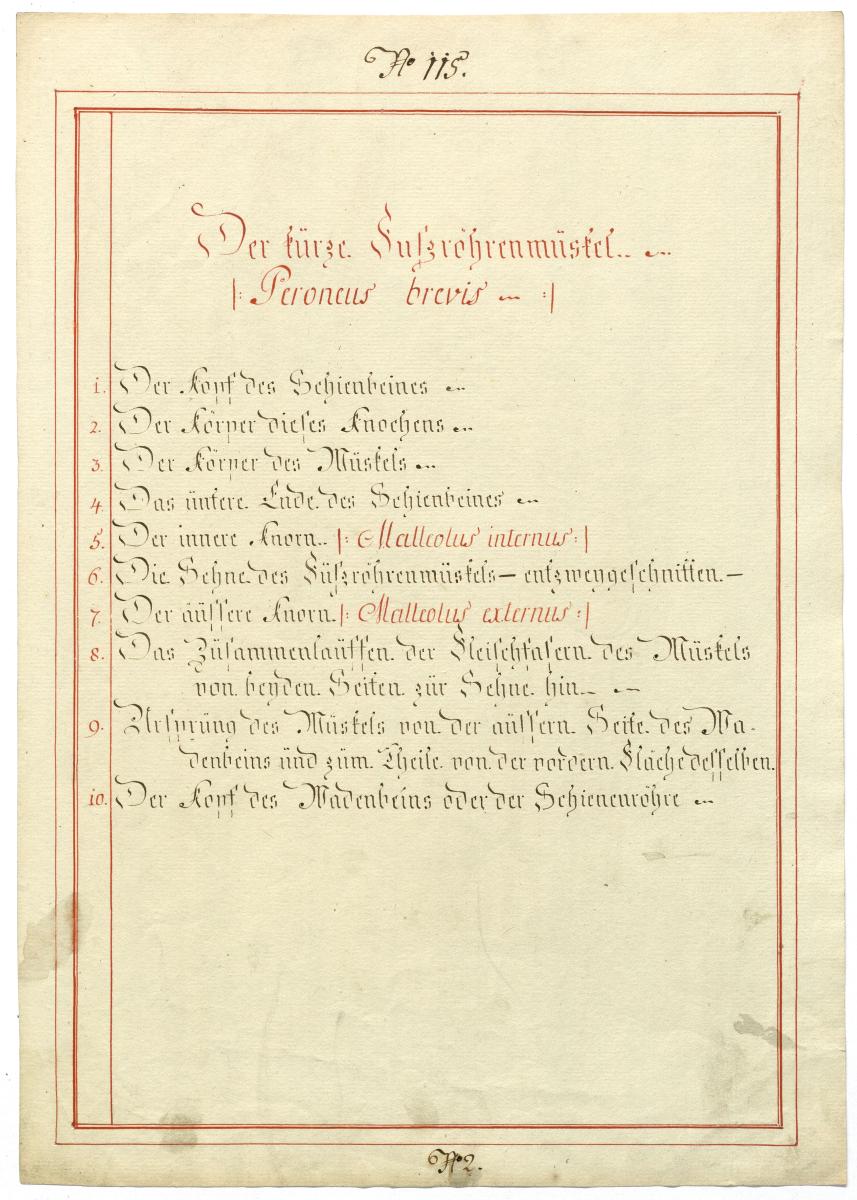 No 115.
Der kürze Fuſzröhrenmüskel.. ~
|: Peroneus brevis ~ :|
1. Der Kopf des Schienbeines ~
2. Der Körper dieſes Knochens ~
3. Der Körper des Müskels ~
4. Das üntere Ende des Schienbeines ~
5. Der innere Knorn.. |: Malleolus internus :|
6. Die Sehne des Füſzröhrenmüskels — entzweygeſchnitten. —
7. Der äüſſere Knorn. |: Malleolus externus :|
8. Das Züſammenlaüffen der Fleiſchfaſern des Müskels
von beyden Seiten zür Sehne hin. — ~
9. Urſprüng des Müskels von der äüſſern Seite des Wa-
denbeins ünd züm Theile von der vordern Fläche deſſelben.
10. Der Kopf des Wadenbeins oder der Schienenröhre ~
No 2.